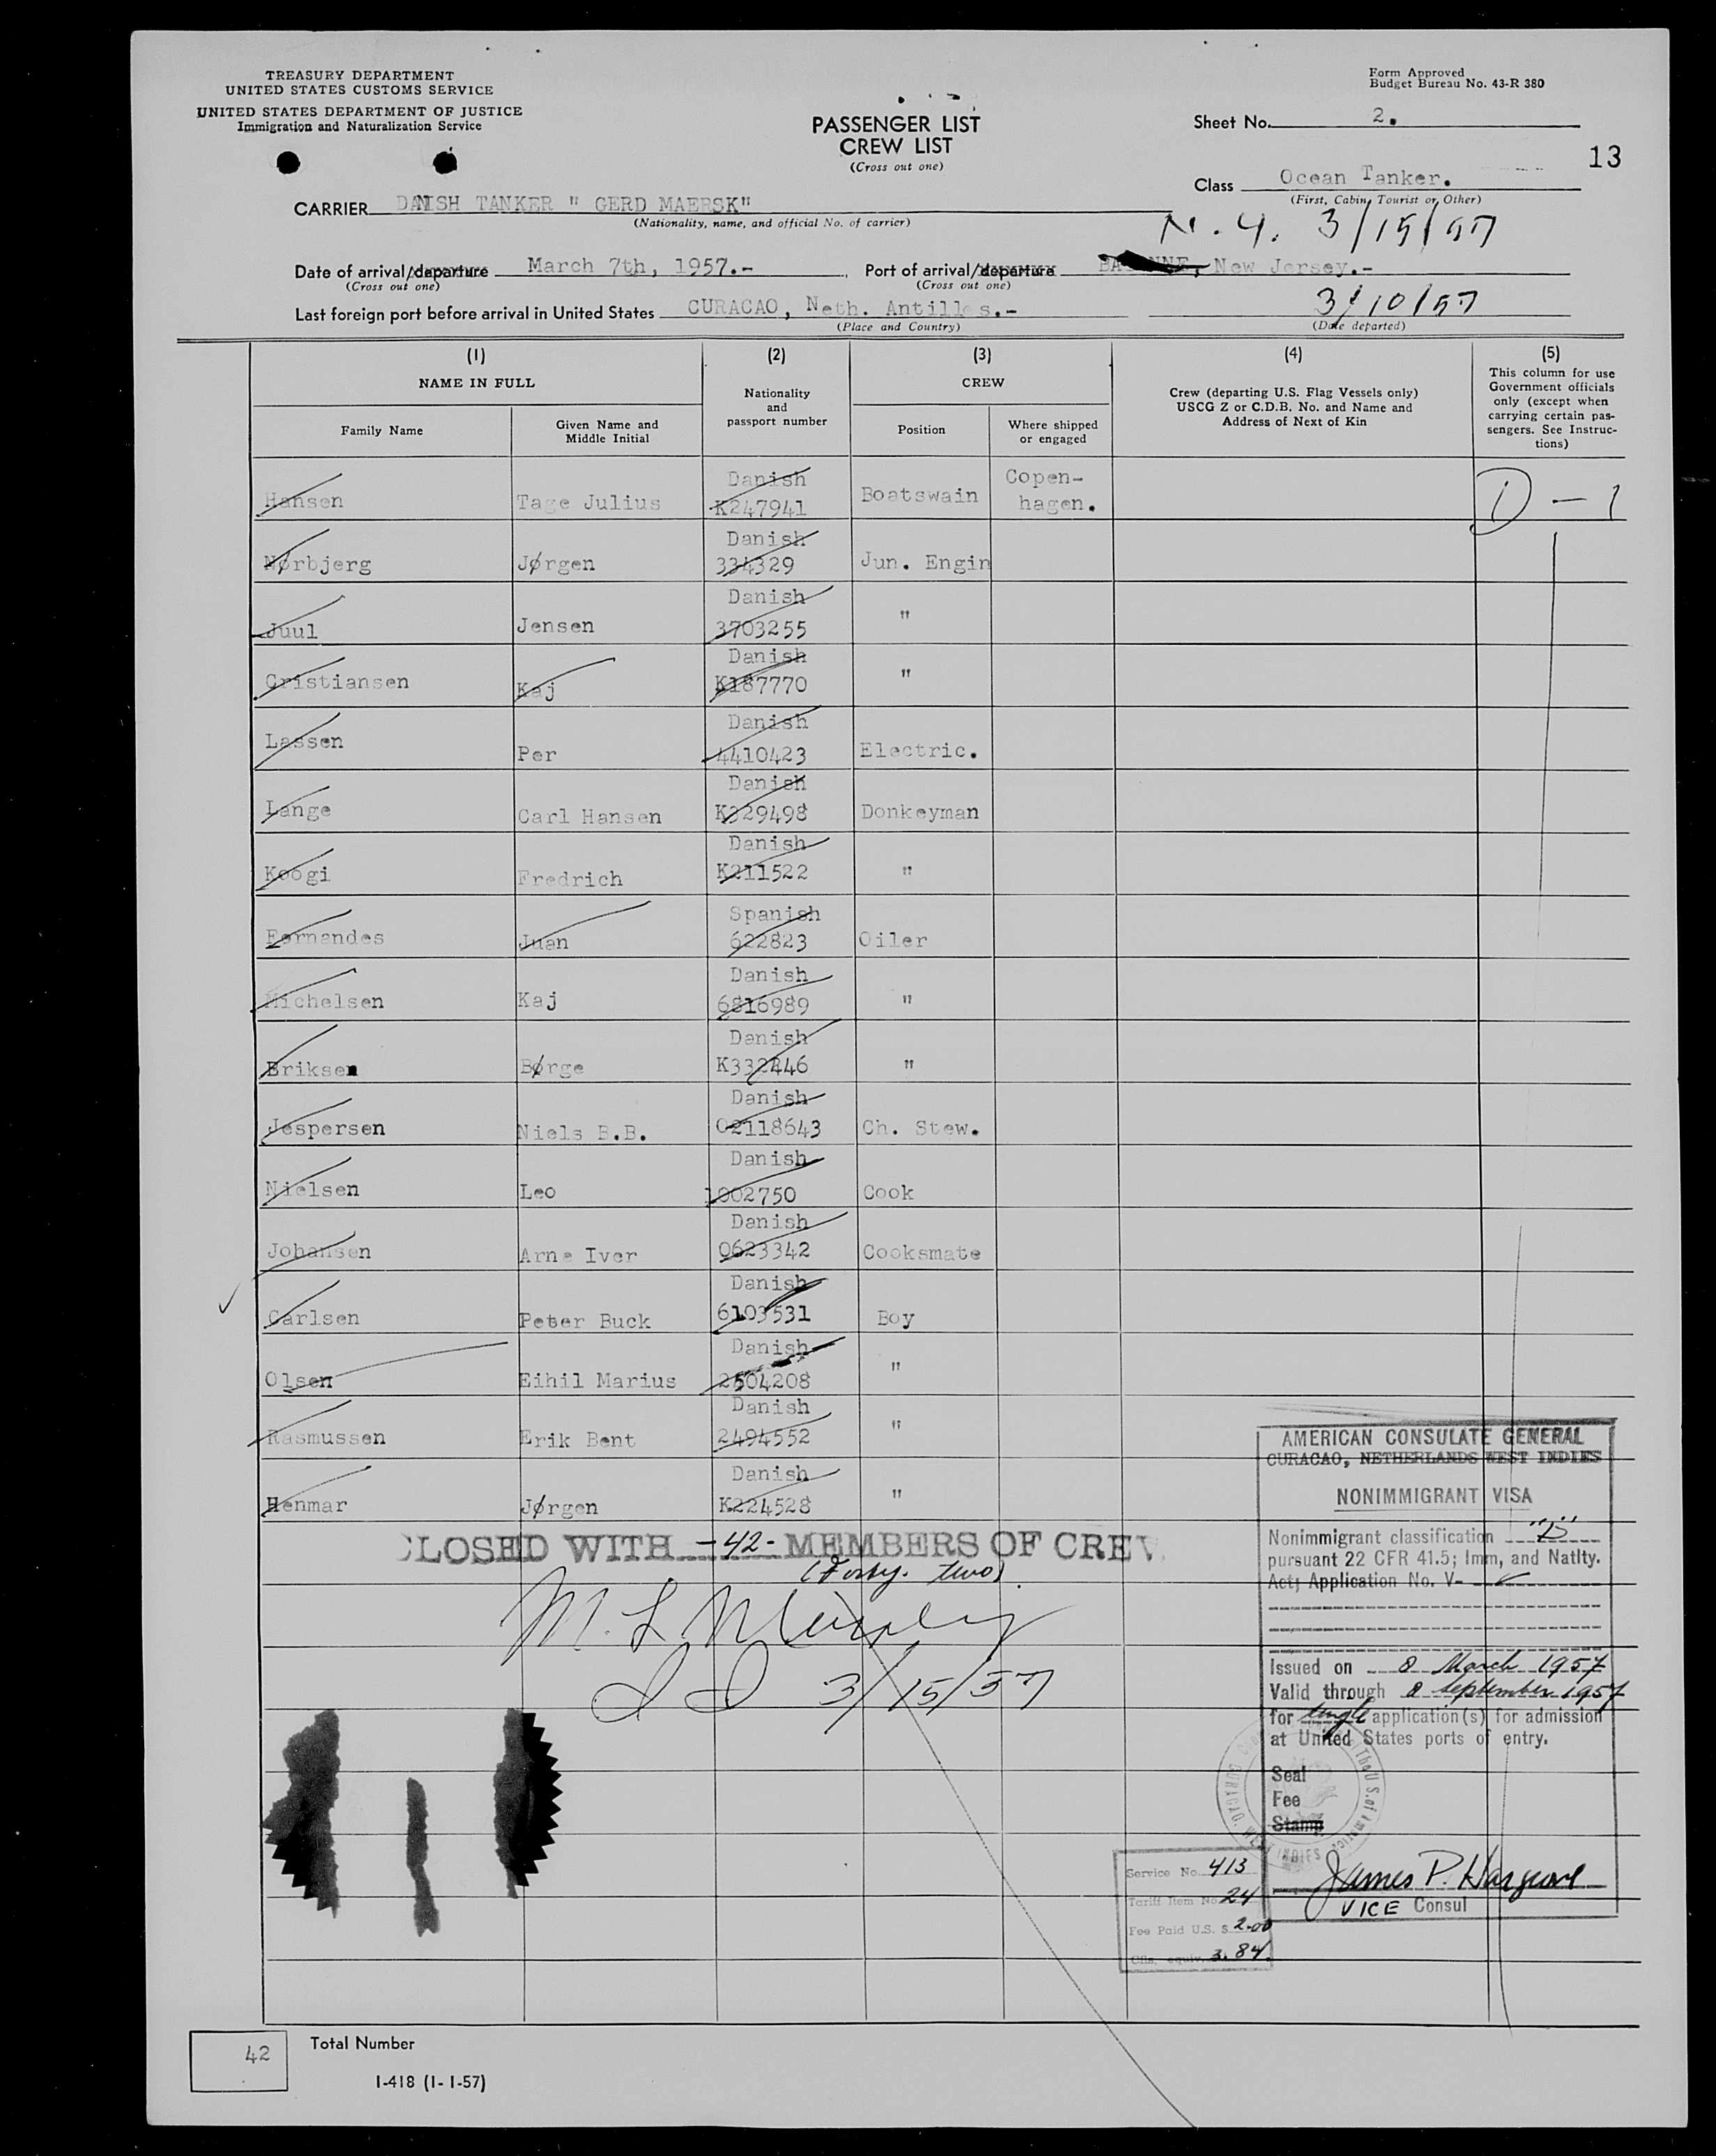 TREASURY DEPARTMENT
UNITED STATES CUSTOMS SERVICE
UNITED STATES DEPARTMENT OF JUSTICE
Immigration and Naturalization Service
Form Approved
Budget Bureau No. 43-R 380
PASSENGER LIST
CREW LIST
(Cross out one)
Sheet No. 2.
13
Class Ocean Tanker.
(First, Cabin, Tourist or Other)
CARRIER DANISH TANKER " GERD MAERSK"
(Nationality, name, and official No. of carrier)
N.Y. 3/15/57
Date of arrival/departure March 7th, 1957.-
(Cross out one)
Port of arrival/departure BAYONNE, New Jersey.-
(Cross out one)
Last foreign port before arrival in United States CURACAO, Neth. Antilles.-
(Place and Country)
3/10/57
(Date departed)
(1) (2) (3) (4) (5)
NAME IN FULL
Family Name
Given Name and
Middle Initial
Nationality
and
passport number
CREW
Position
Where shipped
or engaged
Crew (departing U.S. Flag Vessels only)
USCG Z or C.D.B. No. and Name and
Address of Next of Kin
This column for use
Government officials
only (except when
carrying certain pas-
sengers. See Instruc-
tions)
Hansen Tage Julius Danish K247941 Boatswain Copen-hagen. D - 1
Nørbjerg Jørgen Danish 334329 Jun. Engin
Juul Jensen Danish 3703255 "
Cristiansen Kaj Danish K187770 "
Lassen Per Danish 4410423 Electric.
Lange Carl Hansen Danish K329498 Donkeyman
Koogi Fredrich Danish K211522 "
Fernandes Juan Spanish 622823 Oiler
Michelsen Kaj Danish 6816989 "
Eriksen Børge Danish K332446 "
Jespersen Niels B.B. Danish 02118643 Ch. Stew.
Nielsen Leo Danish 1002750 Cook
Johansen Arne Iver Danish 0623342 Cooksmate
Carlsen Peter Buck Danish 6103531 Boy
Olsen Eihil Marius Danish 2504208 "
Rasmussen Erik Bent Danish 2494552 "
Henmar Jørgen Danish K224528 "
CLOSED WITH -42- MEMBERS OF CREW
(Forty-two)
M. L. Murphy
3/15/57
AMERICAN CONSULATE GENERAL
CURACAO, NETHERLANDS WEST INDIES
NONIMMIGRANT VISA
Nonimmigrant classification "D"
pursuant 22 CFR 41.5; Imm, and Natlty.
Act; Application No. V-
Issued on 8 March 1957
Valid through 8 September 1957
for single application(s) for admission
at United States ports of entry.
Seal
Fee
Stamp
James P. Hargrove
VICE Consul
Service No. 413
Tariff Item No. 24
Fee Paid U.S. $ 2.00
Cfls. equiv. 3.84
42
Total Number
I-418 (1-1-57)